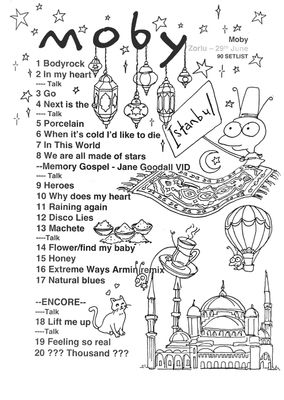 moby
Moby
Zorlu – 29th June
90 SETLIST
1 Bodyrock
2 In my heart
---- Talk
3 Go
4 Next is the
---- Talk
5 Porcelain
6 When it's cold I'd like to die
7 In This World
8 We are all made of stars
--Memory Gospel - Jane Goodall VID
---- Talk
9 Heroes
10 Why does my heart
11 Raining again
12 Disco Lies
13 Machete
----Talk
14 Flower/find my baby
15 Honey
16 Extreme Ways Armin remix
17 Natural blues
--ENCORE--
----Talk
18 Lift me up
19 Feeling so real
20 ??? Thousand ???
Istanbul